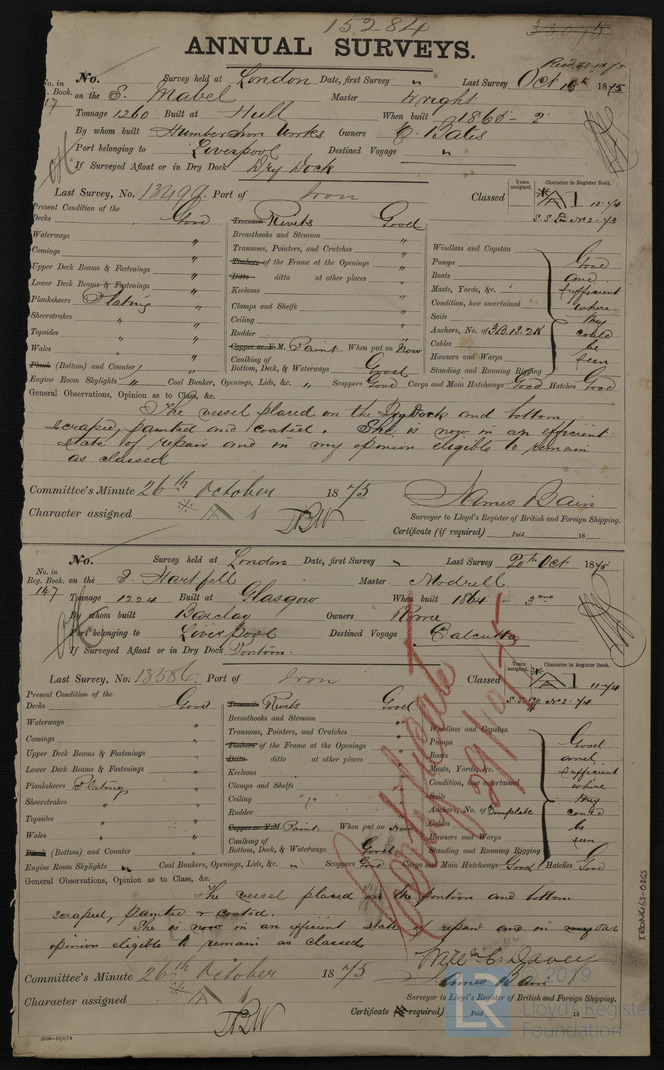 15284
ANNUAL SURVEYS.
No. in Book. 17
No. Survey held at London Date, first Survey " Last Survey Oct 1875
on the S. Mabel Master Wright
Tonnage 1260 Built at Hull When built 1865-2
By whom built Humber Iron Works Owners C. Bates
Port belonging to Liverpool Destined Voyage "
If Surveyed Afloat or in Dry Dock Dry Dock
Last Survey, No. 13499 Port of Iron Classed
Years assigned. Character in Register Book.
A 1
Present Condition of the
Decks Good
Waterways "
Comings "
Upper Deck Beams & Fastenings "
Lower Deck Beams & Fastenings "
Planksheers Plating "
Sheerstrakes "
Topsides "
Wales "
Plank (Bottom) and Counter "
Treenails Rivets Good
Breasthooks and Stemson "
Transoms, Pointers, and Crutches "
Timbers of the Frame at the Openings "
Ditto ditto at other places "
Keelsons "
Clamps and Shelfs "
Ceiling "
Rudder "
Copper or Y.M. Paint When put on Now
Caulking of Bottom, Deck, & Waterways Good
Windlass and Capstan
Pumps
Boats
Masts, Yards, &c.
Condition, how ascertained
Sails
Anchors, No. of 3B. 1S. 2K
Cables
Hawsers and Warps
Standing and Running Rigging
Good and sufficient where they could be seen
Engine Room Skylights " Coal Bunker, Openings, Lids, &c. " Scuppers Good Cargo and Main Hatchways Good Hatches Good
General Observations, Opinion as to Class, &c.
The vessel placed on the Dry Dock and bottom
scraped, painted and coated. She is now in an efficient
state of repair and in my opinion eligible to remain
as classed
Committee's Minute 26th October 1875 James Bain
Character assigned A 1 Surveyor to Lloyd's Register of British and Foreign Shipping.
Certificate (if required) Paid 18
No. in Reg. Book. 147
No. Survey held at London Date, first Survey " Last Survey 20th Oct 1875
on the S. Hartfell Master Modrell
Tonnage 1224 Built at Glasgow When built 1864 -
By whom built Barclay Owners Rome
Port belonging to Liverpool Destined Voyage Calcutta
If Surveyed Afloat or in Dry Dock Pontoon.
Last Survey, No. 13586 Port of Iron Classed
Years assigned. Character in Register Book.
A 1 11-74
Present Condition of the
Decks Good
Waterways "
Comings "
Upper Deck Beams & Fastenings "
Lower Deck Beams & Fastenings "
Planksheers Plating "
Sheerstrakes "
Topsides "
Wales "
Plank (Bottom) and Counter "
Treenails Rivets Good
Breasthooks and Stemson "
Transoms, Pointers, and Crutches "
Timbers of the Frame at the Openings "
Ditto ditto at other places "
Keelsons "
Clamps and Shelfs "
Ceiling "
Rudder "
Copper or Y.M. Paint When put on Now
Caulking of Bottom, Deck, & Waterways Good
Windlass and Capstan
Pumps
Boats
Masts, Yards, &c.
Condition, how ascertained
Sails
Anchors, No. of Complete
Cables
Hawsers and Warps
Standing and Running Rigging
Good and sufficient where they could be seen
Engine Room Skylights " Coal Bunkers, Openings, Lids, &c. " Scuppers Good Cargo and Main Hatchways Good Hatches Good
General Observations, Opinion as to Class, &c.
The vessel placed on the pontoon and bottom
scraped, painted & coated.
She is now in an efficient state of repair and in my our
opinion eligible to remain as classed
Wm C. Davey
Committee's Minute 26th October 1875 James Bain
Character assigned A 1 Surveyor to Lloyd's Register of British and Foreign Shipping.
Certificate (if required) Paid 18
Certificate
IRON463-0365
© 2019
Lloyd's Register
Foundation
LR